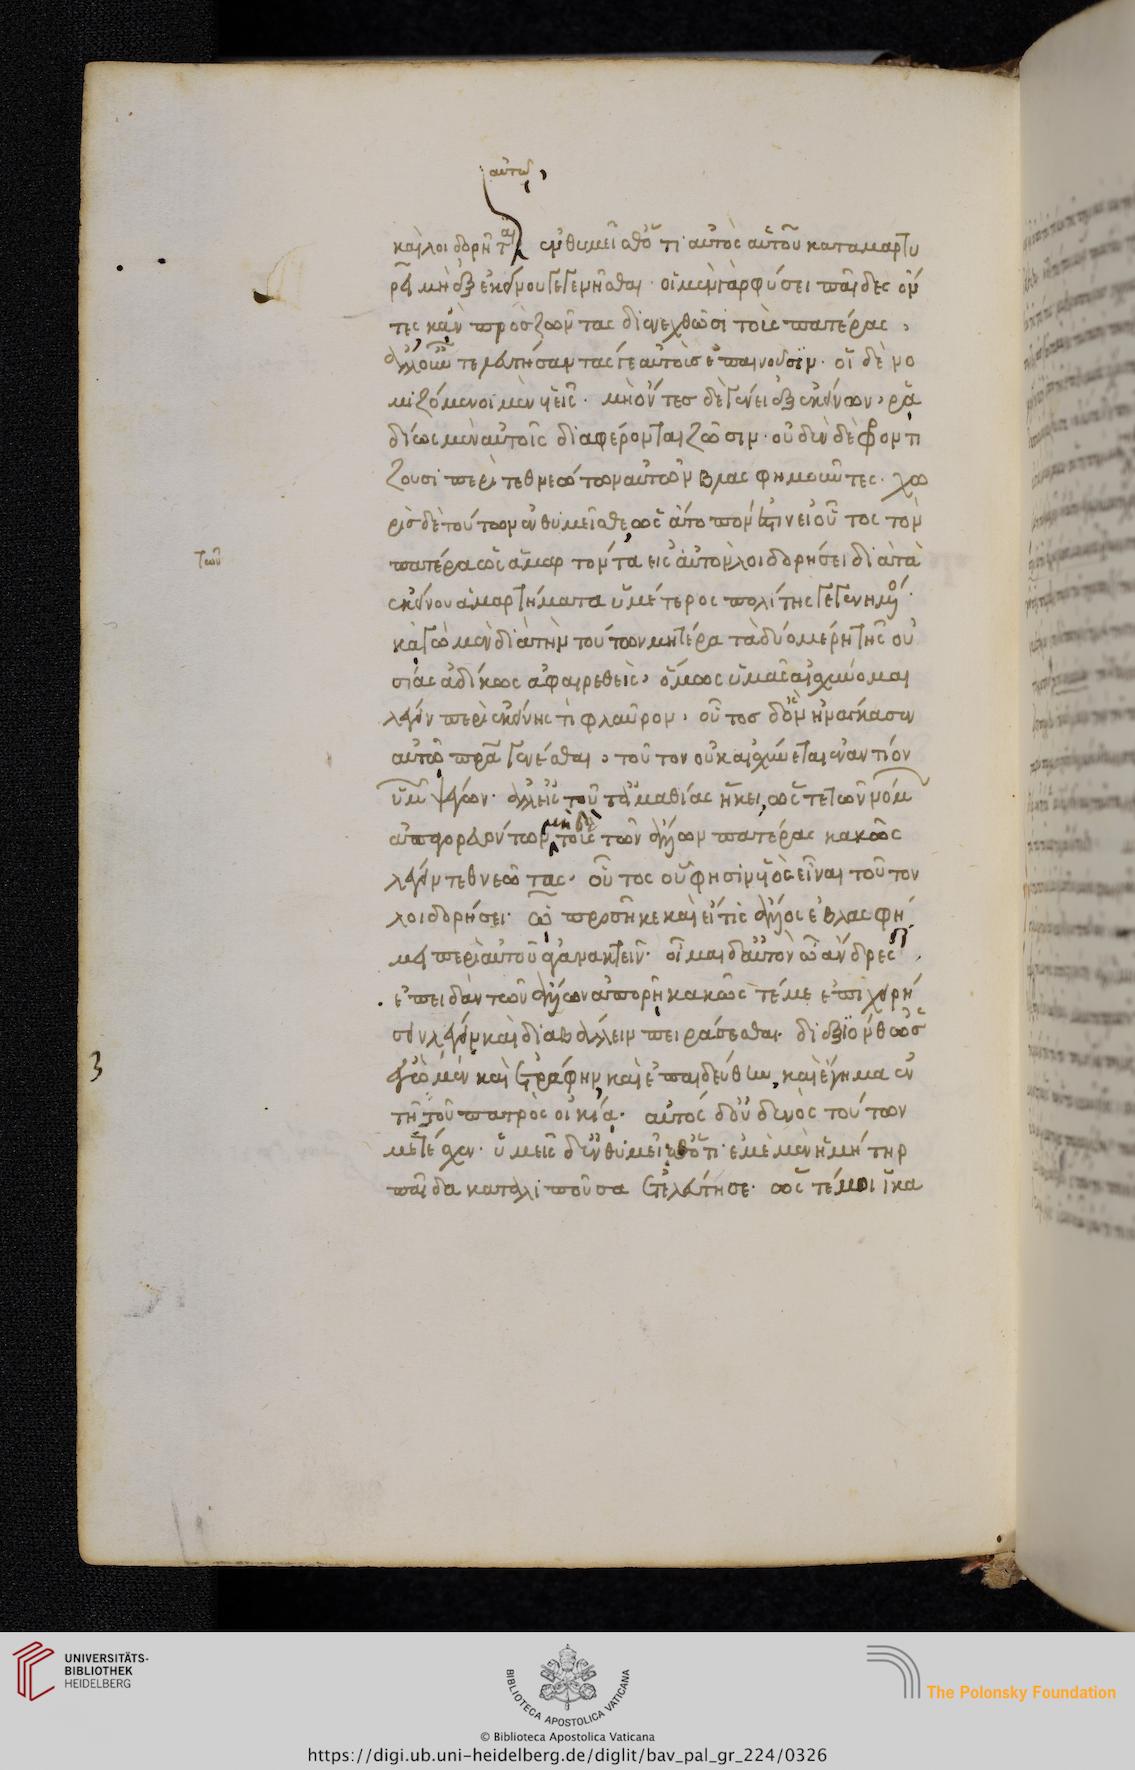 αὐτῷ,
καὶ λοιδορῆται ἐνθυμεῖσθ' ὅτι αὐτὸς αὑτοῦ καταμαρτυ
ρεῖ μὴ ἐξ ἐκείνου γεγενῆσθαι · οἱ μὲν γὰρ φύσει παῖδες ὄν
τες κἂν πρὸς ζῶντας διενεχθῶσι τοὺς πατέρας,
τελευτήσαντάς γε αὐτοὺς ἐπαινοῦσιν · οἱ δὲ νο
μιζόμενοι μὲν υἱεῖς · μὴ ὄντες δὲ γένει ἐξ ἐκείνων, ρᾳ
δίως μὲν αὐτοῖς διαφέρονται ζῶσιν · οὐδὲν δὲ φροντί
ζουσι περὶ τεθνεώτων αὐτῶν βλασφημοῦντες · χω
ρὶς δὲ τούτων ἐνθυμεῖσθε, ὡς ἄτοπόν ἐστιν εἰ οὗτος τὸν
πατέρα ὡς ἁμαρτόντα εἰς αὐτὸν λοιδορήσει διὰ τὰ
ἐκείνου ἁμαρτήματα ὑμέτερος πολίτης γεγενημένος ·
κἀγὼ μὲν διὰ τὴν τούτων μητέρα τὰ δύο μέρη τῆς οὐ
σίας ἀδίκως ἀφαιρεθείς, ὅμως ὑμᾶς αἰσχύνομαι
λέγειν περὶ ἐκείνης τι φλαῦρον, οὗτος δ' ὃν ἠνάγκασεν
αὐτῷ πρα γενέσθαι, τοῦτον οὐκ αἰσχύνεται ἐναντίον
ὑμῶν ψέγων · ἀλλ' εἰς τοῦτ' ἀμαθίας ἥκει, ὥστε τῶν νόμων
ἀπαγορευόντων, μηδὲ τοὺς τῶν ἄλλων πατέρας κακῶς
λέγειν τεθνεῶτας · οὗτος οὗ φησὶν υἱὸς εἶναι τοῦτον
λοιδορήσει · ᾧ προσῆκε καὶ εἴ τις ἄλλος ἐβλασφή
μει περὶ αὐτοῦ ἀγανακτεῖν · οἶμαι δ' αὐτὸν ὦ ἄνδρες
ἐπειδὰν τῶν ἄλλων ἀπορῇ κακῶς τέ με ἐπιχειρή
σειν λέγειν καὶ διαβάλλειν πειράσεσθαι · διεξιόνθ' ὡς
ἐγὼ μὲν καὶ ἐτράφην, καὶ ἐπαιδεύθην, καὶ ἔγημα ἐν
τῇ τοῦ πατρὸς οἰκίᾳ · αὐτὸς δ' οὐδενὸς τούτων
μετέσχεν · ὑμεῖς δ' ἐνθυμεῖσθ' ὅτι ἐμὲ μὲν ἡ μήτηρ
παῖδα καταλιποῦσα ἐτελεύτησε · ὥστέ μοι ἱκα
των
3
UNIVERSITÄTS-
BIBLIOTHEK
HEIDELBERG
BIBLIOTECA APOSTOLICA VATICANA
The Polonsky Foundation
© Biblioteca Apostolica Vaticana
https://digi.ub.uni-heidelberg.de/diglit/bav_pal_gr_224/0326